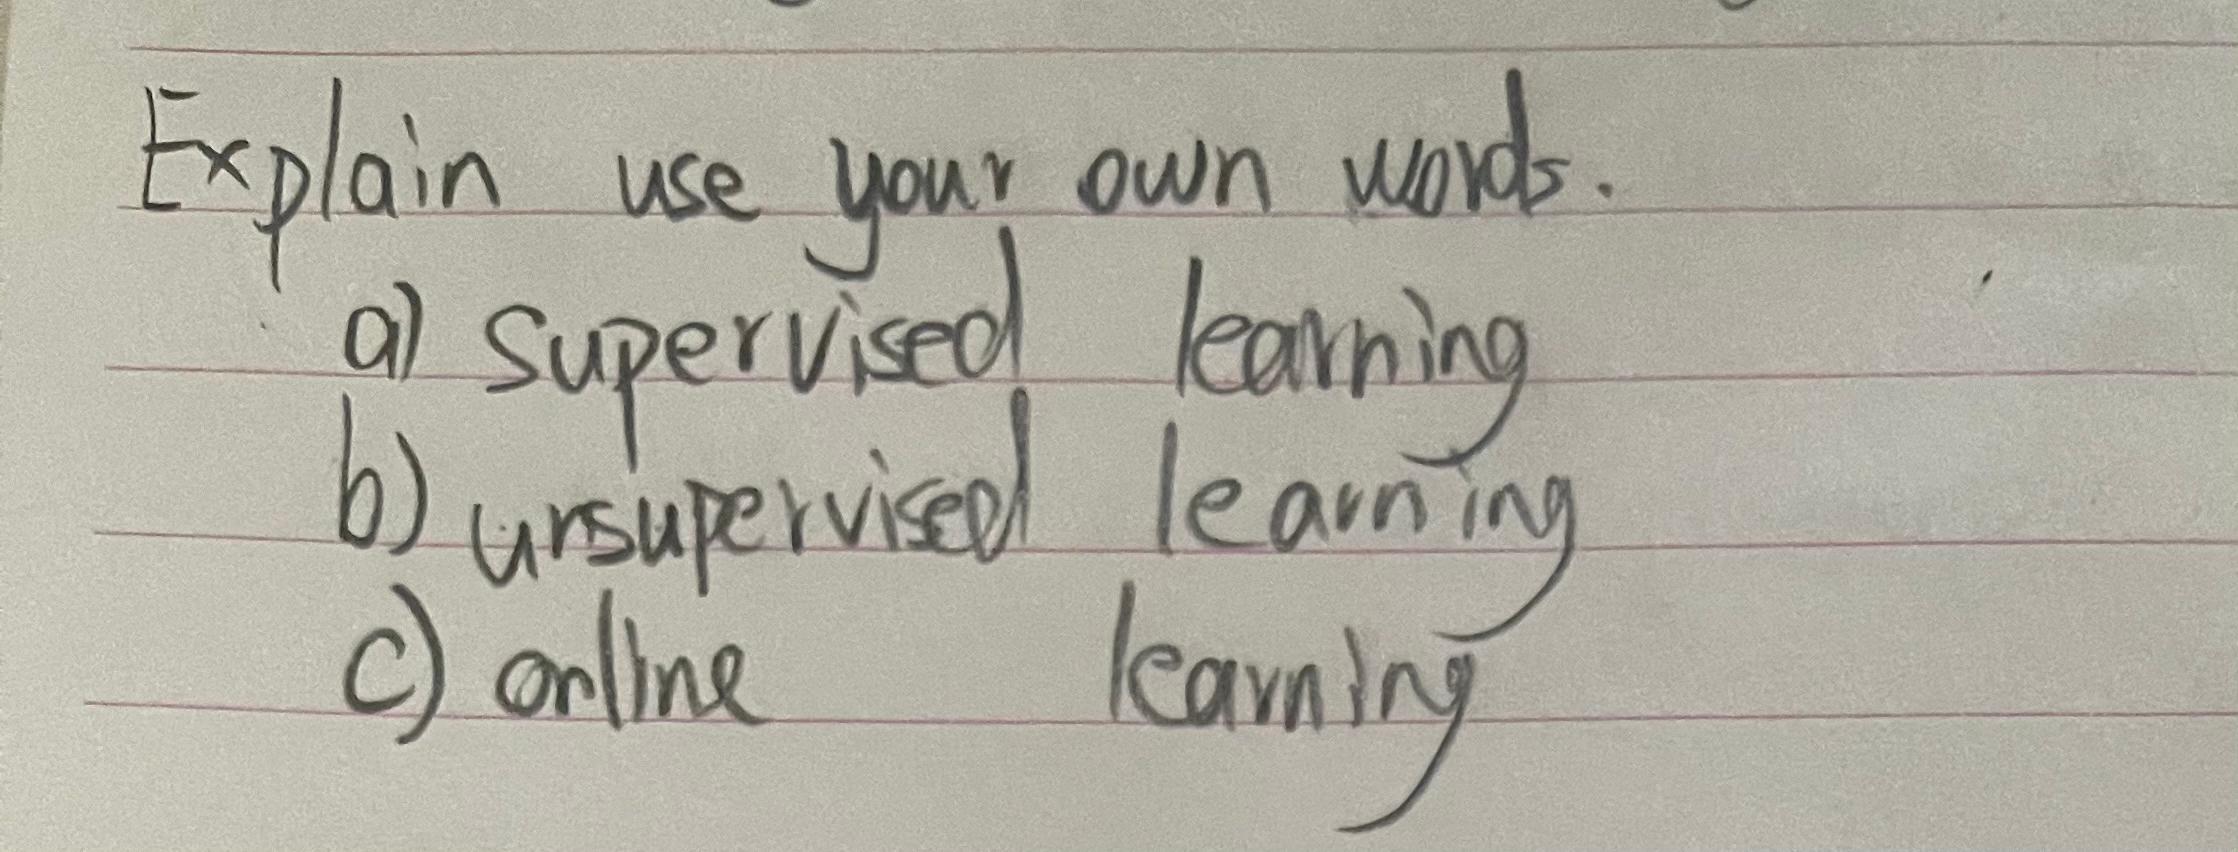 Explain use your own words.
a) supervised learning
b) unsupervised learning
c) online learning